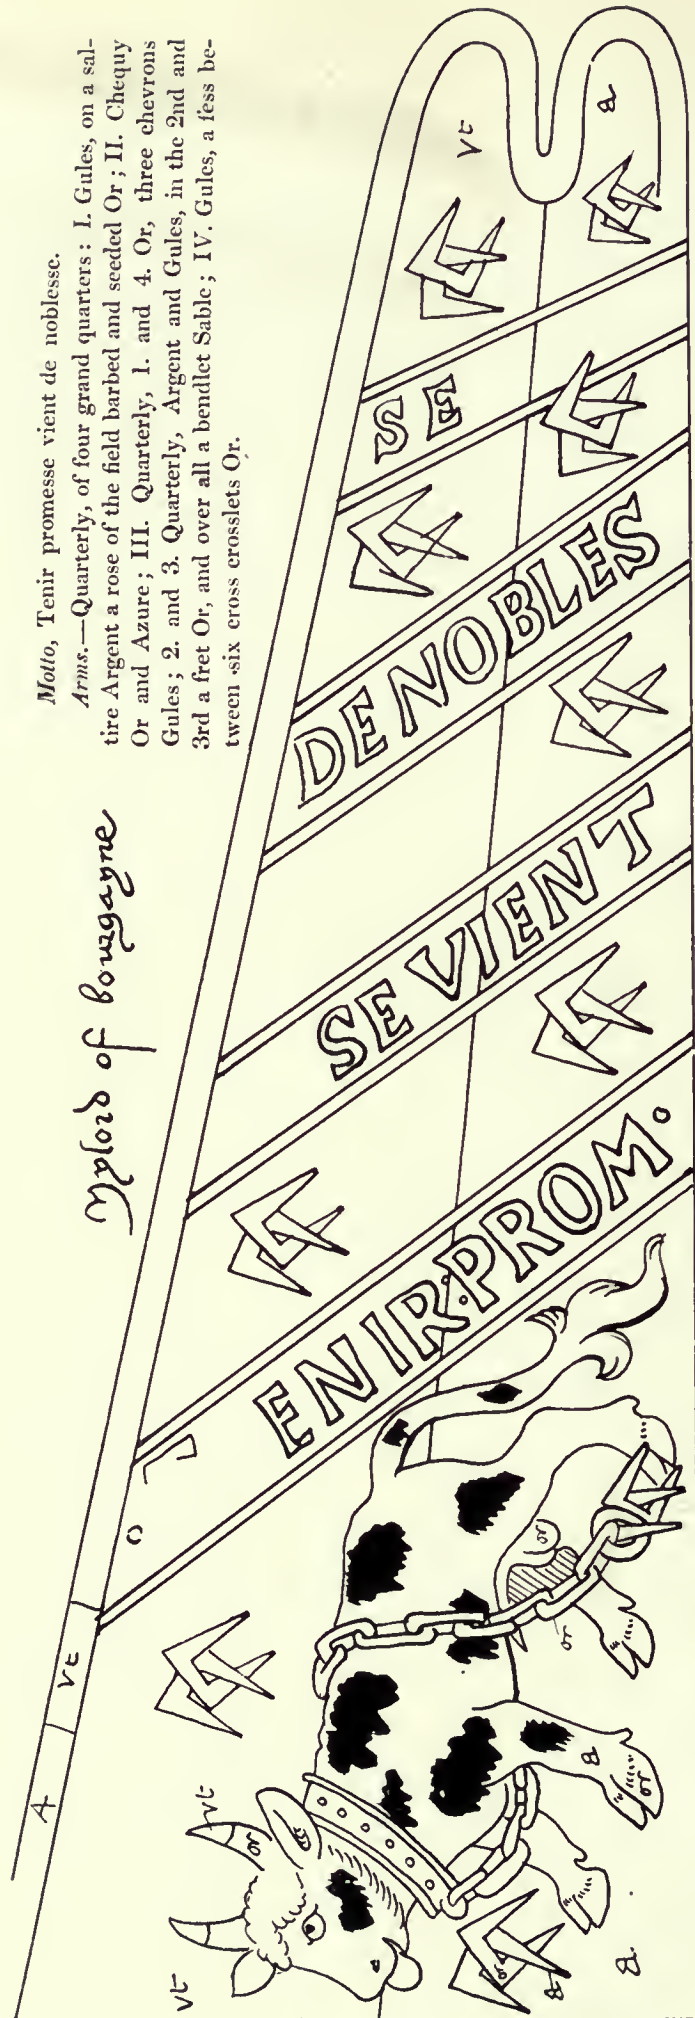 Motto, Tenir promesse vient de noblesse.
Arms.—Quarterly, of four grand quarters: I. Gules, on a sal-
tire Argent a rose of the field barbed and seeded Or; II. Chequy
Or and Azure; III. Quarterly, 1. and 4. Or, three chevrons
Gules; 2. and 3. Quarterly, Argent and Gules, in the 2nd and
3rd a fret Or, and over all a bendlet Sable; IV. Gules, a fess be-
tween six cross crosslets Or.
Mylord of bourgayne
A
vt
vt
vt
or
o
ENIR·PROM.
SE VIENT
DE NOBLES
SE
vt
a
or
or
a
or
or
a
a